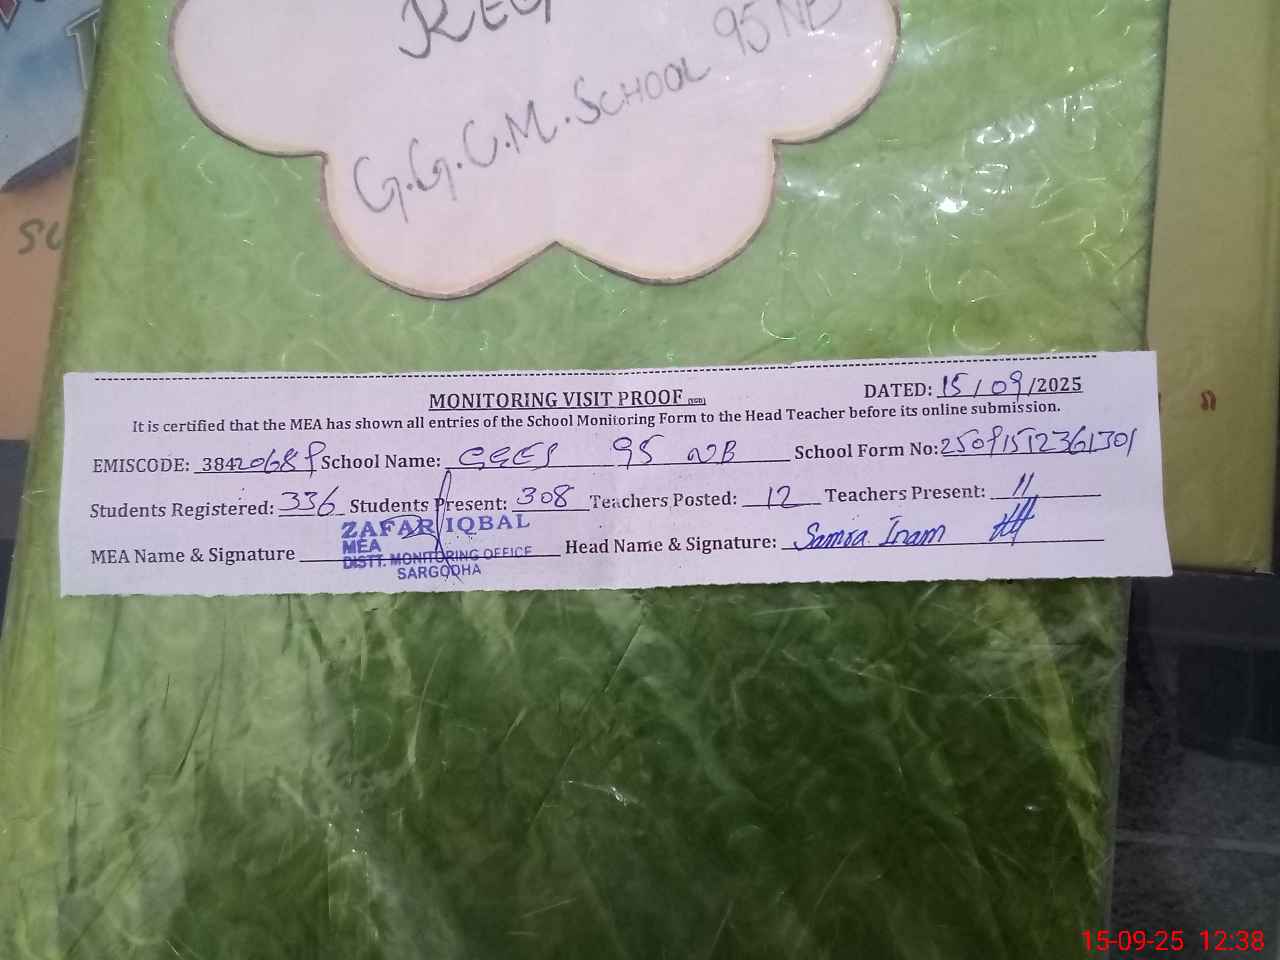 G.G.C.M. SCHOOL 95 NB
MONITORING VISIT PROOF
DATED: 15/09/2025
It is certified that the MEA has shown all entries of the School Monitoring Form to the Head Teacher before its online submission.
EMISCODE: 38420689 School Name: GGES 95 NB School Form No: 25091512361301
Students Registered: 336 Students Present: 308 Teachers Posted: 12 Teachers Present: 11
MEA Name & Signature ZAFAR IQBAL Head Name & Signature: Samra Inam
MEA
DISTT. MONITORING OFFICE
SARGODHA
15-09-25 12:38